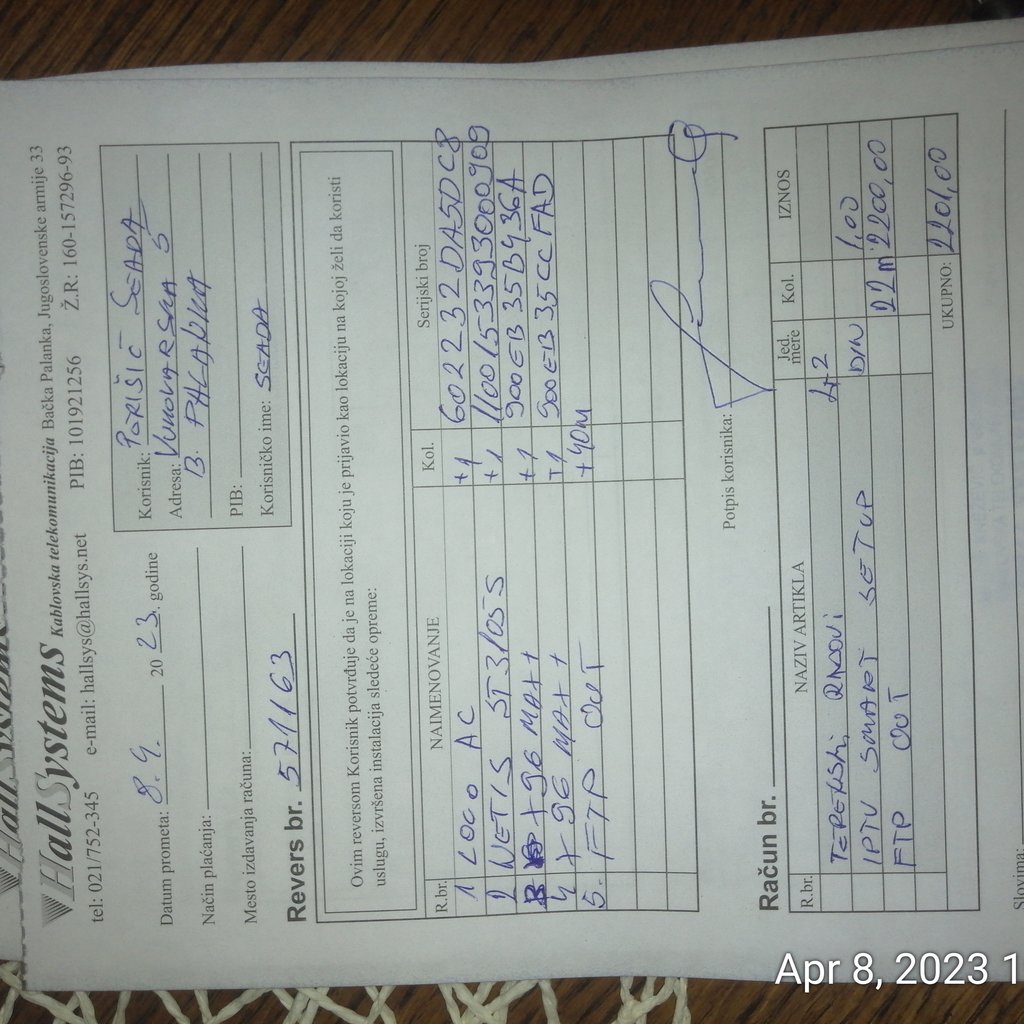 HallSystems Kablovska telekomunikacija Bačka Palanka, Jugoslovenske armije 33
tel: 021/752-345 e-mail: hallsys@hallsys.net PIB: 101921256 Ž.R: 160-157296-93
Datum prometa: 8.4. 2023. godine
Način plaćanja:
Mesto izdavanja računa:
Korisnik: PORIŠIĆ SEADA
Adresa: VUKOVARSKA 5
B. PALANKA
PIB:
Korisničko ime: SEADA
Revers br. 571163
Ovim reversom Korisnik potvrđuje da je na lokaciji koju je prijavio kao lokaciju na kojoj želi da koristi
uslugu, izvršena instalacija sledeće opreme:
R.br. NAIMENOVANJE Kol. Serijski broj
1 LOCO AC +1 602232DA5DC8
2 NETIS ST3105S +1 1100153393000909
3 X96 MAX+ +1 900EB35B436A
4 X96 MAX+ +1 900EB35CCFAD
5. FTP OUT +40m
Potpis korisnika:
Račun br.
R.br. NAZIV ARTIKLA Jed. mere Kol. IZNOS
TERENSKI RADOVI
IPTV SMART SETUP DIN 1,00
FTP OUT 22m 2200,00
UKUPNO: 2201,00
Slovima:
Apr 8, 2023 1